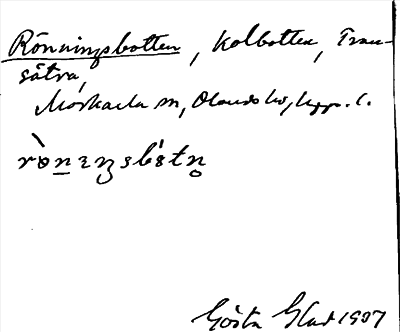 Rönningsbotten, Kolbotten, Tran-
sätra,
Morkarla sn, Olands hd, Upp. l.
Gösta Glad 1937